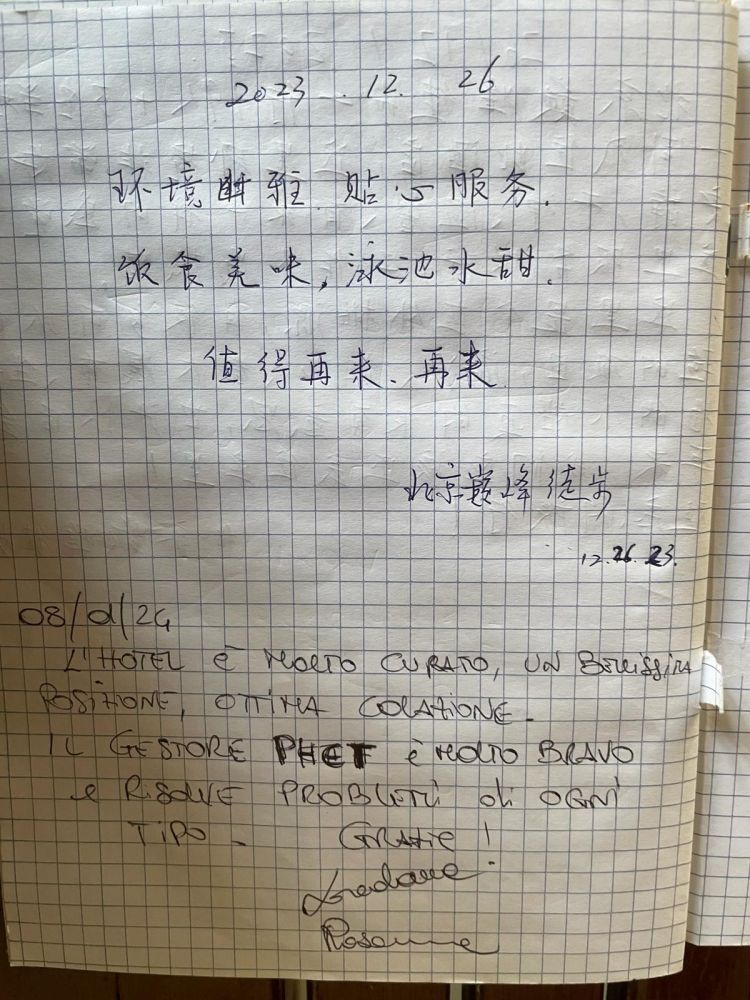 2023. 12. 26
环境雅. 贴心服务.
饭食美味, 泳池水甜.
值得再来、再来
北京巅峰徒步
12. 26. 23.
08/01/24
L'HOTEL È MOLTO CURATO, UN BELLISSIMA
POSIZIONE, OTTIMA COLAZIONE.
IL GESTORE PHET è MOLTO BRAVO
e RISOLVE PROBLEMI di OGNI
TIPO. GRAZIE!
Loredana
Rosanna